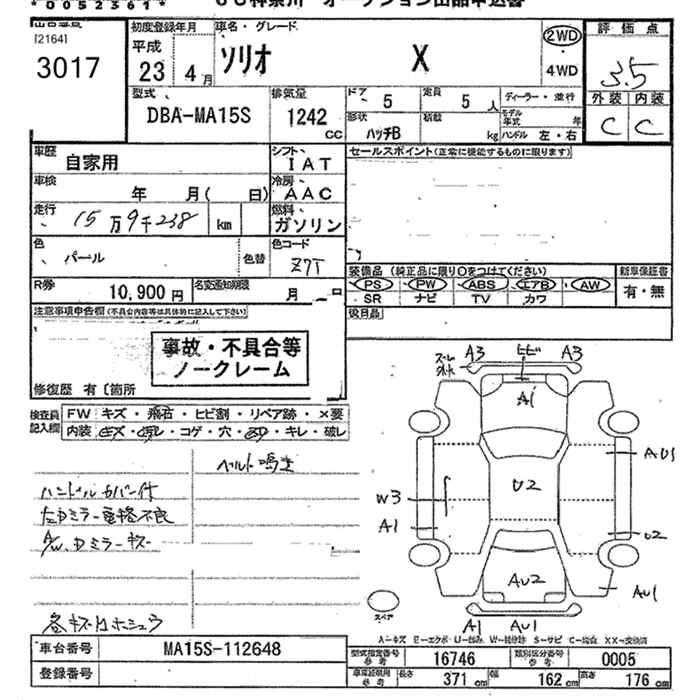 *00523361*
[2164]
3017
初度登録年月
平成
23年 4月
車名・グレード
ソリオ X
2WD
・
4WD
評価点
3.5
外装 内装
C C
型式
DBA-MA15S
排気量
1242
CC
ドア
5
定員
5人
ディーラー・並行
形状
ハッチB
積載
kg
モデル年式 年
ハンドル 左・右
車歴
自家用
シフト
IAT
セールスポイント(正常に機能するものに限ります)
車検
年 月( 日)
冷房
AAC
走行
15万9千238 km
燃料
ガソリン
色
パール
色替
色コード
Z7T
装備品(純正品に限り○をつけてください)
PS PW ABS エアB AW
SR ナビ TV カワ
新車保証書
有・無
R券
10,900円
名変通知期限
月 日
後日品
注意事項申告欄(不具合内容等は具体的に記入して下さい)
事故・不具合等
ノークレーム
修復歴 有〔箇所
検査員
記入欄
FW キズ・飛石・ヒビ割・リペア跡・×要
内装
・コゲ・穴・
・キレ・破レ
ベルト鳴き
ハンドルカバー付
左Dミラー電格不良
A/W、Dミラーキズ
各キズ凹ホシュウ
A3
ヒビ
A3
A1
W3
A1
U2
AU1
U2
AU2
AU1
A1
AU1
スペア
A-キズ E-エクボ U-凹み W-補修跡 S-サビ C-腐食 XX-交換済
車台番号
MA15S-112648
登録番号
型式指定番号
参考
16746
類別区分番号
参考
0005
車庫証明用
参考
長さ
371 cm
幅
162 cm
高さ
176 cm